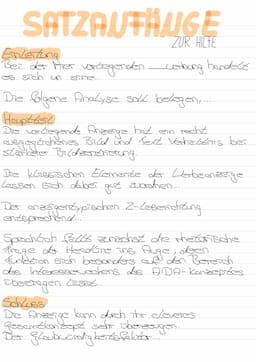 SATZANFÄNGE
ZUR HILFE
Einleitung
Bei der hier vorliegenden __werbung handelt
es sich um eine...
Die folgende Analyse soll belegen,...
Hauptteil
Die vorliegende Anzeige hat ein recht
ausgeglichenes Bild und Text Verhältnis bei
starker Bildzentrierung.
Die klassischen Elemente der Werbeanzeige
lassen sich dabei gut
Der anzeigentypischen Z-Leserichtung
entsprechend...
Sprachlich fällt zunächst die rhetorische
Frage der Headline ins Auge, deren
Funktion sich besonders auf den Bereich
des Interesseweckens des AIDA-Konzeptes
übertragen lässt.
Schluss
Die Anzeige kann durch ihr cleveres
Gesamtkonzept sehr überzeugen.
Der Glaubwürdigkeitsfaktor...